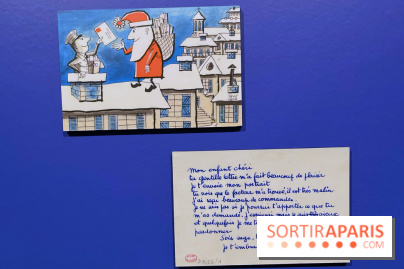 Mon enfant chéri
ta gentille lettre m'a fait beaucoup de plaisir
je t'envoie mon portrait
tu vois que le facteur m'a trouvé, il est très malin
j'ai reçu beaucoup de commandes
je ne sais pas si je pourrai t'apporter ce que tu
m'as demandé. J'essaierai mais je suis très vieux
et quelquefois je me
pardonner
Sois sage,
je t'embrasse
SORTIRAPARIS
.COM